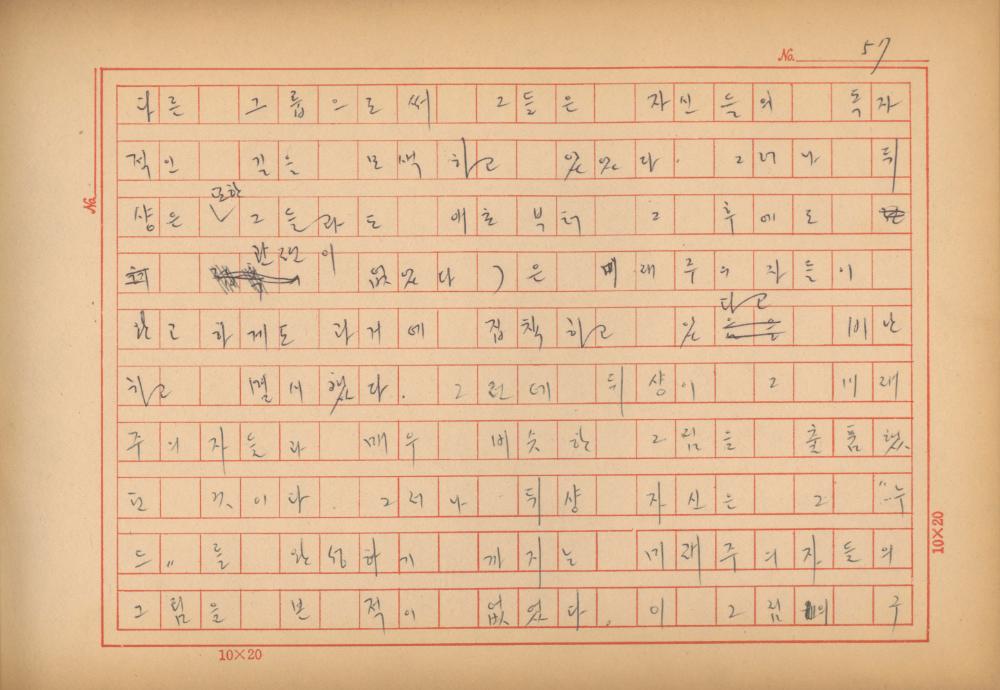 No. 57
다른 그룹으로써 그들은 자신들의 독자
적인 길을 모색하고 있었다. 그러나 뒤
샹은 또한 그들과도 애초부터 그 후에도
관련이 없었다)은 미래주의자들이
완고하게도 과거에 집착하고 있다고 비난
하고 멸시했다. 그런데 뒤샹이 그 미래
주의자들과 매우 비슷한 그림을 출품했
던 것이다. 그러나 뒤샹 자신은 그 "누
드"를 완성하기까지는 미래주의자들의
그림을 본 적이 없었다. 이 그림의 구
No.
10×20
10×20